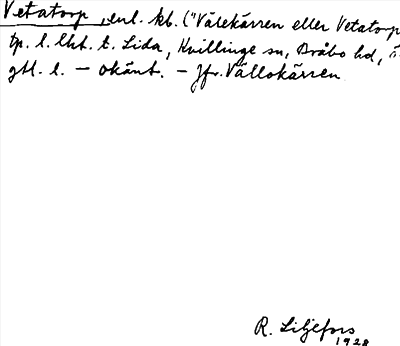 Vetatorp, enl. kb. ("Vätekärren eller Vetatorp
tp. l. lht. t. Lida, Kvillinge sn, Bråbo hd, Ö
gtl. l. – okänt. – Jfr. Vällokärren
R. Liljefors
1928